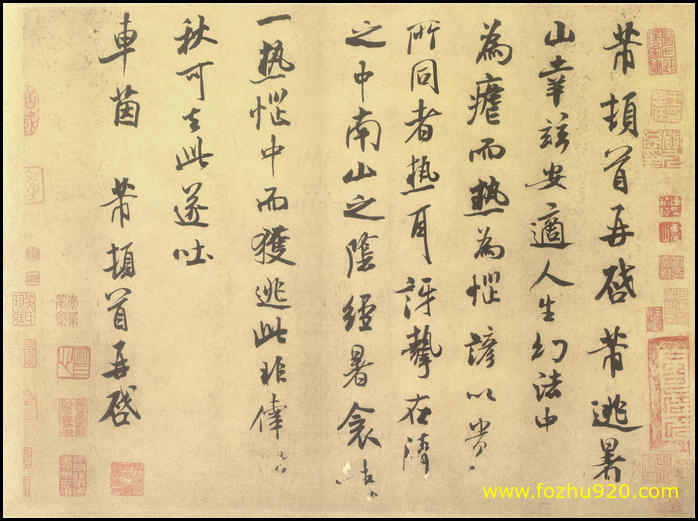 芾頓首再啓芾逃暑
山幸兹安適人生幻法中
為瘧而熱為惱諺以貴
所同者熱耳訝挈在清
之中南山之陰經暑衾
一熱惱中而獲逃此非倖
秋可去此遂吐
車茵 芾頓首再啓
www.fozhu920.com